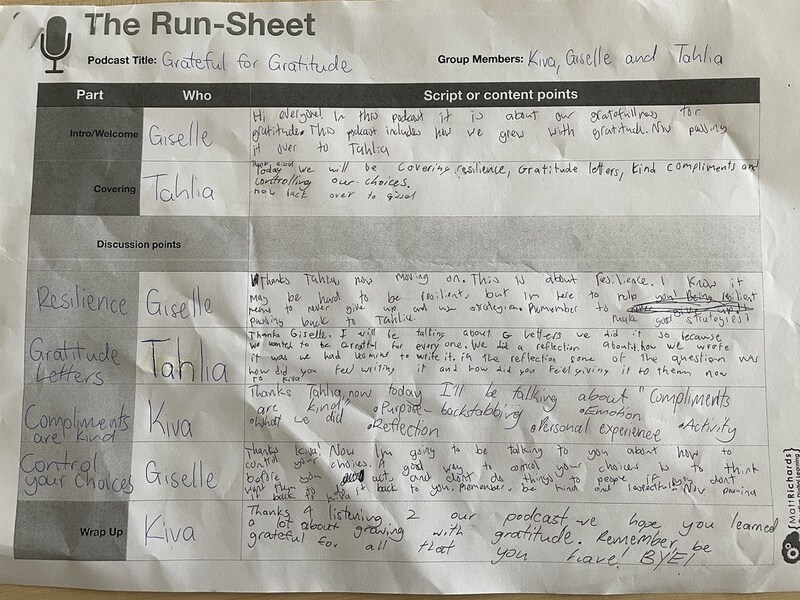 The Run-Sheet
Podcast Title: Grateful for Gratitude
Group Members: Kiva, Giselle and Tahlia
Part Who Script or content points
Intro/Welcome
Giselle
Hi everyone! In this podcast it is about our gratefullness for
gratitude. This podcast includes how we grew with gratitude. Now passing
it over to Tahlia
Covering
Tahlia
Today we will be covering resilience, Gratitude letters, kind compliments and
controlling our choices.
now back over to
Discussion points
Resilience
Giselle
Thanks Tahlia now moving on. This is about resilience. I know it
may be hard to be resilient, but I'm here to help
to never give up and use strategies. Remember to
make good strategies!
passing back to Tahlia.
Gratitude
Letters
Tahlia
Thanks Giselle. I will be talking about G letters we did it so because
we wanted to be grateful for every one. We did a reflection about how we wrote
it was we had to write it. in the reflection some of the question was
how did you feel writing it and how did you feel giving it to them now
to Kiva
Compliments
are kind
Kiva
Thanks Tahlia, now today I'll be talking about "Compliments
are kind" •Purpose- backstabbing •Emotion
•What we did •Reflection •Personal experience •Activity
Control
your choices
Giselle
Thanks Kiva! Now I'm going to be talking to you about how to
control your choices. A good way to control your choices is to think
before you act and don't do things to people if you don't
want them to do it back to you. Remember be kind and Now passing
it back to Kiva
Wrap Up
Kiva
Thanks 4 listening 2 our podcast we hope you learned
a lot about growing with gratitude. Remember be
grateful for all that you have! BYE!
MattRichards